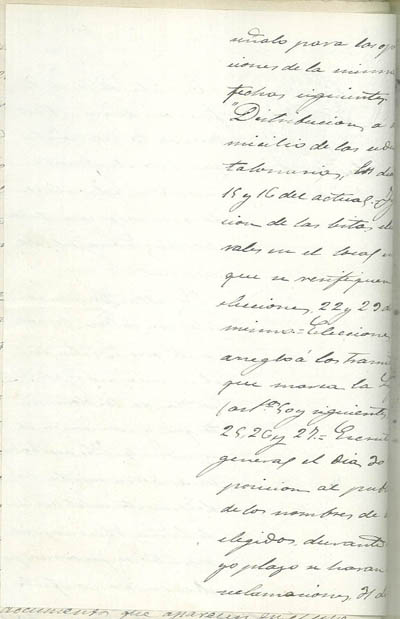 ñalo para las op
ciones de la misma
fechas siguientes.
"Distribucion a
micilio de las
talonarias, los dia
15 y 16 del actual =
cion de las listas
rales en el local
que se verifiquen
elecciones, 22 y 23 d
misma = Eleccione
arreglo á los trami
que marca la L
(artº 50 y siguiente
25, 26 y 27. = Escruti
general el dia 30
posicion al pub
de los nombres de
elegidos, durante
yo plazo se haran
reclamaciones, 31 d
documento que aparecen en el